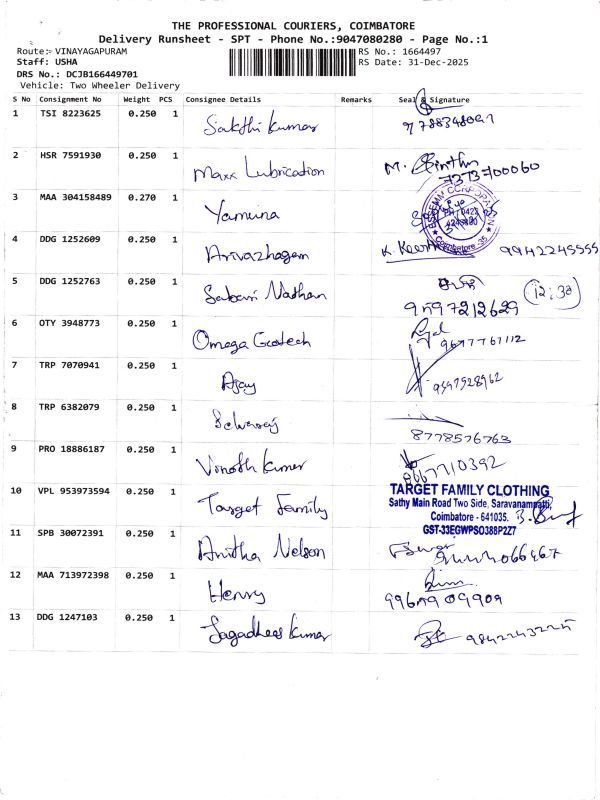 THE PROFESSIONAL COURIERS, COIMBATORE
Delivery Runsheet - SPT - Phone No.:9047080280 - Page No.:1
Route:- VINAYAGAPURAM RS No.: 1664497
Staff: USHA RS Date: 31-Dec-2025
DRS No.: DCJB166449701
Vehicle: Two Wheeler Delivery
S No Consignment No Weight PCS Consignee Details Remarks Seal & Signature
1 TSI 8223625 0.250 1 Sakthi Kumar
2 HSR 7591930 0.250 1 Maxx Lubrication 7373700060
3 MAA 304158489 0.270 1 Yamuna
4 DDG 1252609 0.250 1 Arivazhagan 9942245555
5 DDG 1252763 0.250 1 Sabari Nathan 9597212629 12:30
6 OTY 3948773 0.250 1 Omega Geotech 9677767112
7 TRP 7070941 0.250 1 Ajay
8 TRP 6382079 0.250 1 Selvaraj 8778576763
9 PRO 18886187 0.250 1 Vinoth Kumar
10 VPL 953973594 0.250 1 Target Family
TARGET FAMILY CLOTHING
Sathy Main Road Two Side, Saravanampatti,
Coimbatore - 641035.
GST-33EGWPSO388P2Z7
11 SPB 30072391 0.250 1 Anitha Nelson
12 MAA 713972398 0.250 1 Henry
13 DDG 1247103 0.250 1 Jagadhees Kumar